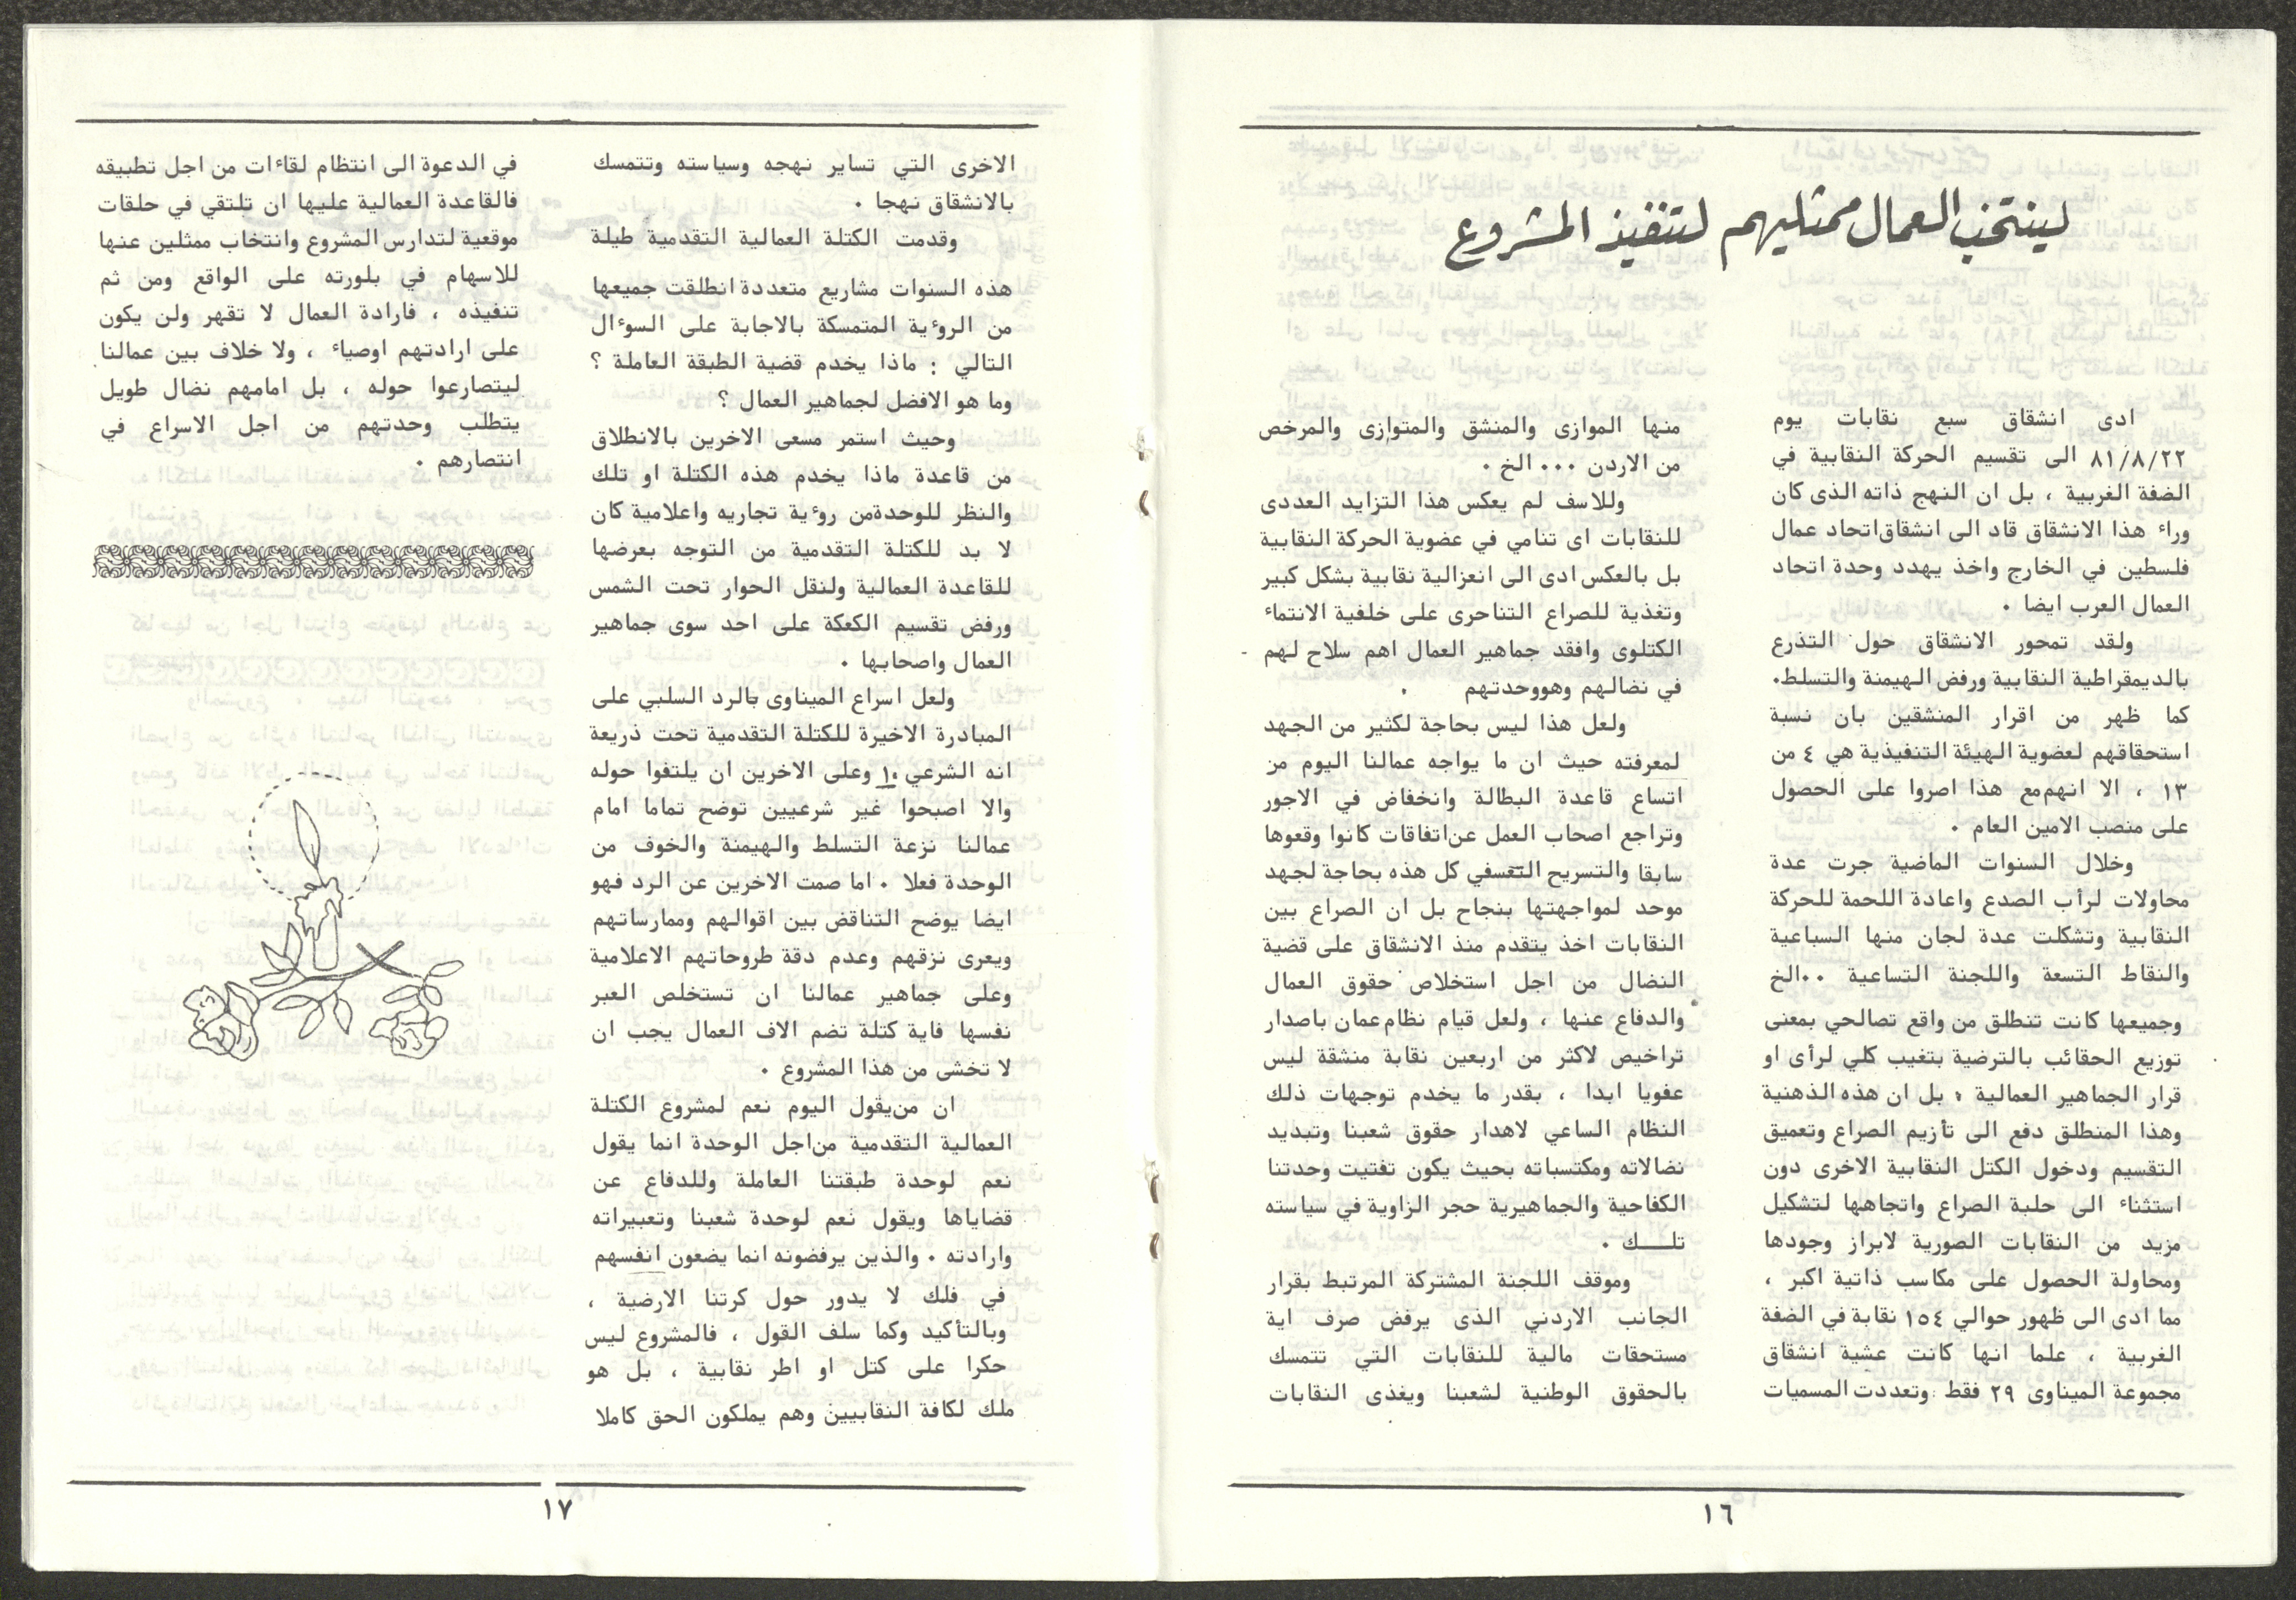 لينتخب العمال ممثليهم لتنفيذ المشروع
ادى انشقاق سبع نقابات يوم
٨١/٨/٢٢ الى تقسيم الحركة النقابية في
الضفة الغربية ، بل ان النهج ذاته الذى كان
وراء هذا الانشقاق قاد الى انشقاق اتحاد عمال
فلسطين في الخارج واخذ يهدد وحدة اتحاد
العمال العرب ايضا .
ولقد تمحور الانشقاق حول التذرع
بالديمقراطية النقابية ورفض الهيمنة والتسلط.
كما ظهر من اقرار المنشقين بان نسبة
استحقاقهم لعضوية الهيئة التنفيذية هي ٤ من
١٣ ، الا انهم مع هذا اصروا على الحصول
على منصب الامين العام .
وخلال السنوات الماضية جرت عدة
محاولات لرأب الصدع واعادة اللحمة للحركة
النقابية وتشكلت عدة لجان منها السباعية
والنقاط التسعة واللجنة التساعية ..الخ
وجميعها كانت تنطلق من واقع تصالحي بمعنى
توزيع الحقائب بالترضية بتغيب كلي لرأى او
قرار الجماهير العمالية ، بل ان هذه الذهنية
وهذا المنطلق دفع الى تأزيم الصراع وتعميق
التقسيم ودخول الكتل النقابية الاخرى دون
استثناء الى حلبة الصراع واتجاهها لتشكيل
مزيد من النقابات الصورية لابراز وجودها
ومحاولة الحصول على مكاسب ذاتية اكبر ،
مما ادى الى ظهور حوالي ١٥٤ نقابة في الضفة
الغربية ، علما انها كانت عشية انشقاق
مجموعة الميناوى ٢٩ فقط وتعددت المسميات
منها الموازى والمنشق والمتوازى والمرخص
من الاردن ... الخ .
وللاسف لم يعكس هذا التزايد العددى
للنقابات اى تنامي في عضوية الحركة النقابية
بل بالعكس ادى الى انعزالية نقابية بشكل كبير
وتغذية للصراع التناحرى على خلفية الانتماء
الكتلوى وافقد جماهير العمال اهم سلاح لهم
في نضالهم وهووحدتهم .
ولعل هذا ليس بحاجة لكثير من الجهد
لمعرفته حيث ان ما يواجه عمالنا اليوم من
اتساع قاعدة البطالة وانخفاض في الاجور
وتراجع اصحاب العمل عن اتفاقات كانوا وقعوها
سابقا والتسريح التعسفي كل هذه بحاجة لجهد
موحد لمواجهتها بنجاح بل ان الصراع بين
النقابات اخذ يتقدم منذ الانشقاق على قضية
النضال من اجل استخلاص حقوق العمال
والدفاع عنها ، ولعل قيام نظام عمان باصدار
تراخيص لاكثر من اربعين نقابة منشقة ليس
عفويا ابدا ، بقدر ما يخدم توجهات ذلك
النظام الساعي لاهدار حقوق شعبنا وتبديد
نضالاته ومكتسباته بحيث يكون تفتيت وحدتنا
الكفاحية والجماهيرية حجر الزاوية في سياسته
تلـــك .
وموقف اللجنة المشتركة المرتبط بقرار
الجانب الاردني الذى يرفض صرف اية
مستحقات مالية للنقابات التي تتمسك
بالحقوق الوطنية لشعبنا ويغذى النقابات
١٦
الاخرى التي تساير نهجه وسياسته وتتمسك
بالانشقاق نهجا .
وقدمت الكتلة العمالية التقدمية طيلة
هذه السنوات مشاريع متعددة انطلقت جميعها
من الروءية المتمسكة بالاجابة على السوءال
التالي : ماذا يخدم قضية الطبقة العاملة ؟
وما هو الافضل لجماهير العمال ؟
وحيث استمر مسعى الاخرين بالانطلاق
من قاعدة ماذا يخدم هذه الكتلة او تلك
والنظر للوحدةمن روءية تجاريه واعلامية كان
لا بد للكتلة التقدمية من التوجه بعرضها
للقاعدة العمالية ولنقل الحوار تحت الشمس
ورفض تقسيم الكعكة على احد سوى جماهير
العمال واصحابها .
ولعل اسراع الميناوى بالرد السلبي على
المبادرة الاخيرة للكتلة التقدمية تحت ذريعة
انه الشرعي وعلى الاخرين ان يلتفوا حوله
والا اصبحوا غير شرعيين توضح تماما امام
عمالنا نزعة التسلط والهيمنة والخوف من
الوحدة فعلا . اما صمت الاخرين عن الرد فهو
ايضا يوضح التناقض بين اقوالهم وممارساتهم
ويعرى نزقهم وعدم دقة طروحاتهم الاعلامية
وعلى جماهير عمالنا ان تستخلص العبر
نفسها فاية كتلة تضم الاف العمال يجب ان
لا تخشى من هذا المشروع .
ان من يقول اليوم نعم لمشروع الكتلة
العمالية التقدمية من اجل الوحدة انما يقول
نعم لوحدة طبقتنا العاملة وللدفاع عن
قضاياها ويقول نعم لوحدة شعبنا وتعبيراته
وارادته . والذين يرفضونه انما يضعون انفسهم
في فلك لا يدور حول كرتنا الارضية ،
وبالتأكيد وكما سلف القول ، فالمشروع ليس
حكرا على كتل او اطر نقابية ، بل هو
ملك لكافة النقابيين وهم يملكون الحق كاملا
في الدعوة الى انتظام لقاءات من اجل تطبيقه
فالقاعدة العمالية عليها ان تلتقي في حلقات
موقعية لتدارس المشروع وانتخاب ممثلين عنها
للاسهام في بلورته على الواقع ومن ثم
تنفيذه ، فارادة العمال لا تقهر ولن يكون
على ارادتهم اوصياء ، ولا خلاف بين عمالنا
ليتصارعوا حوله ، بل امامهم نضال طويل
يتطلب وحدتهم من اجل الاسراع في
انتصارهم .
١٧